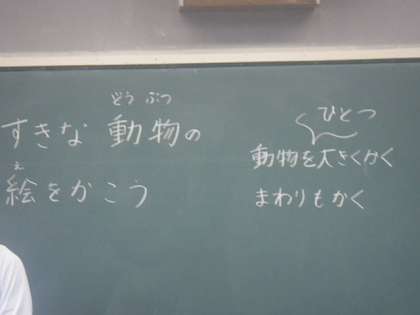 どうぶつ
すきな動物の
え
絵をかこう
ひとつ
動物を大きくかく
まわりもかく